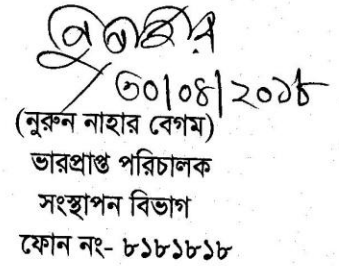 ৩০|০৪|২০১৮
(নুরুন নাহার বেগম)
ভারপ্রাপ্ত পরিচালক
সংস্থাপন বিভাগ
ফোন নং- ৮১৮১৮১৮